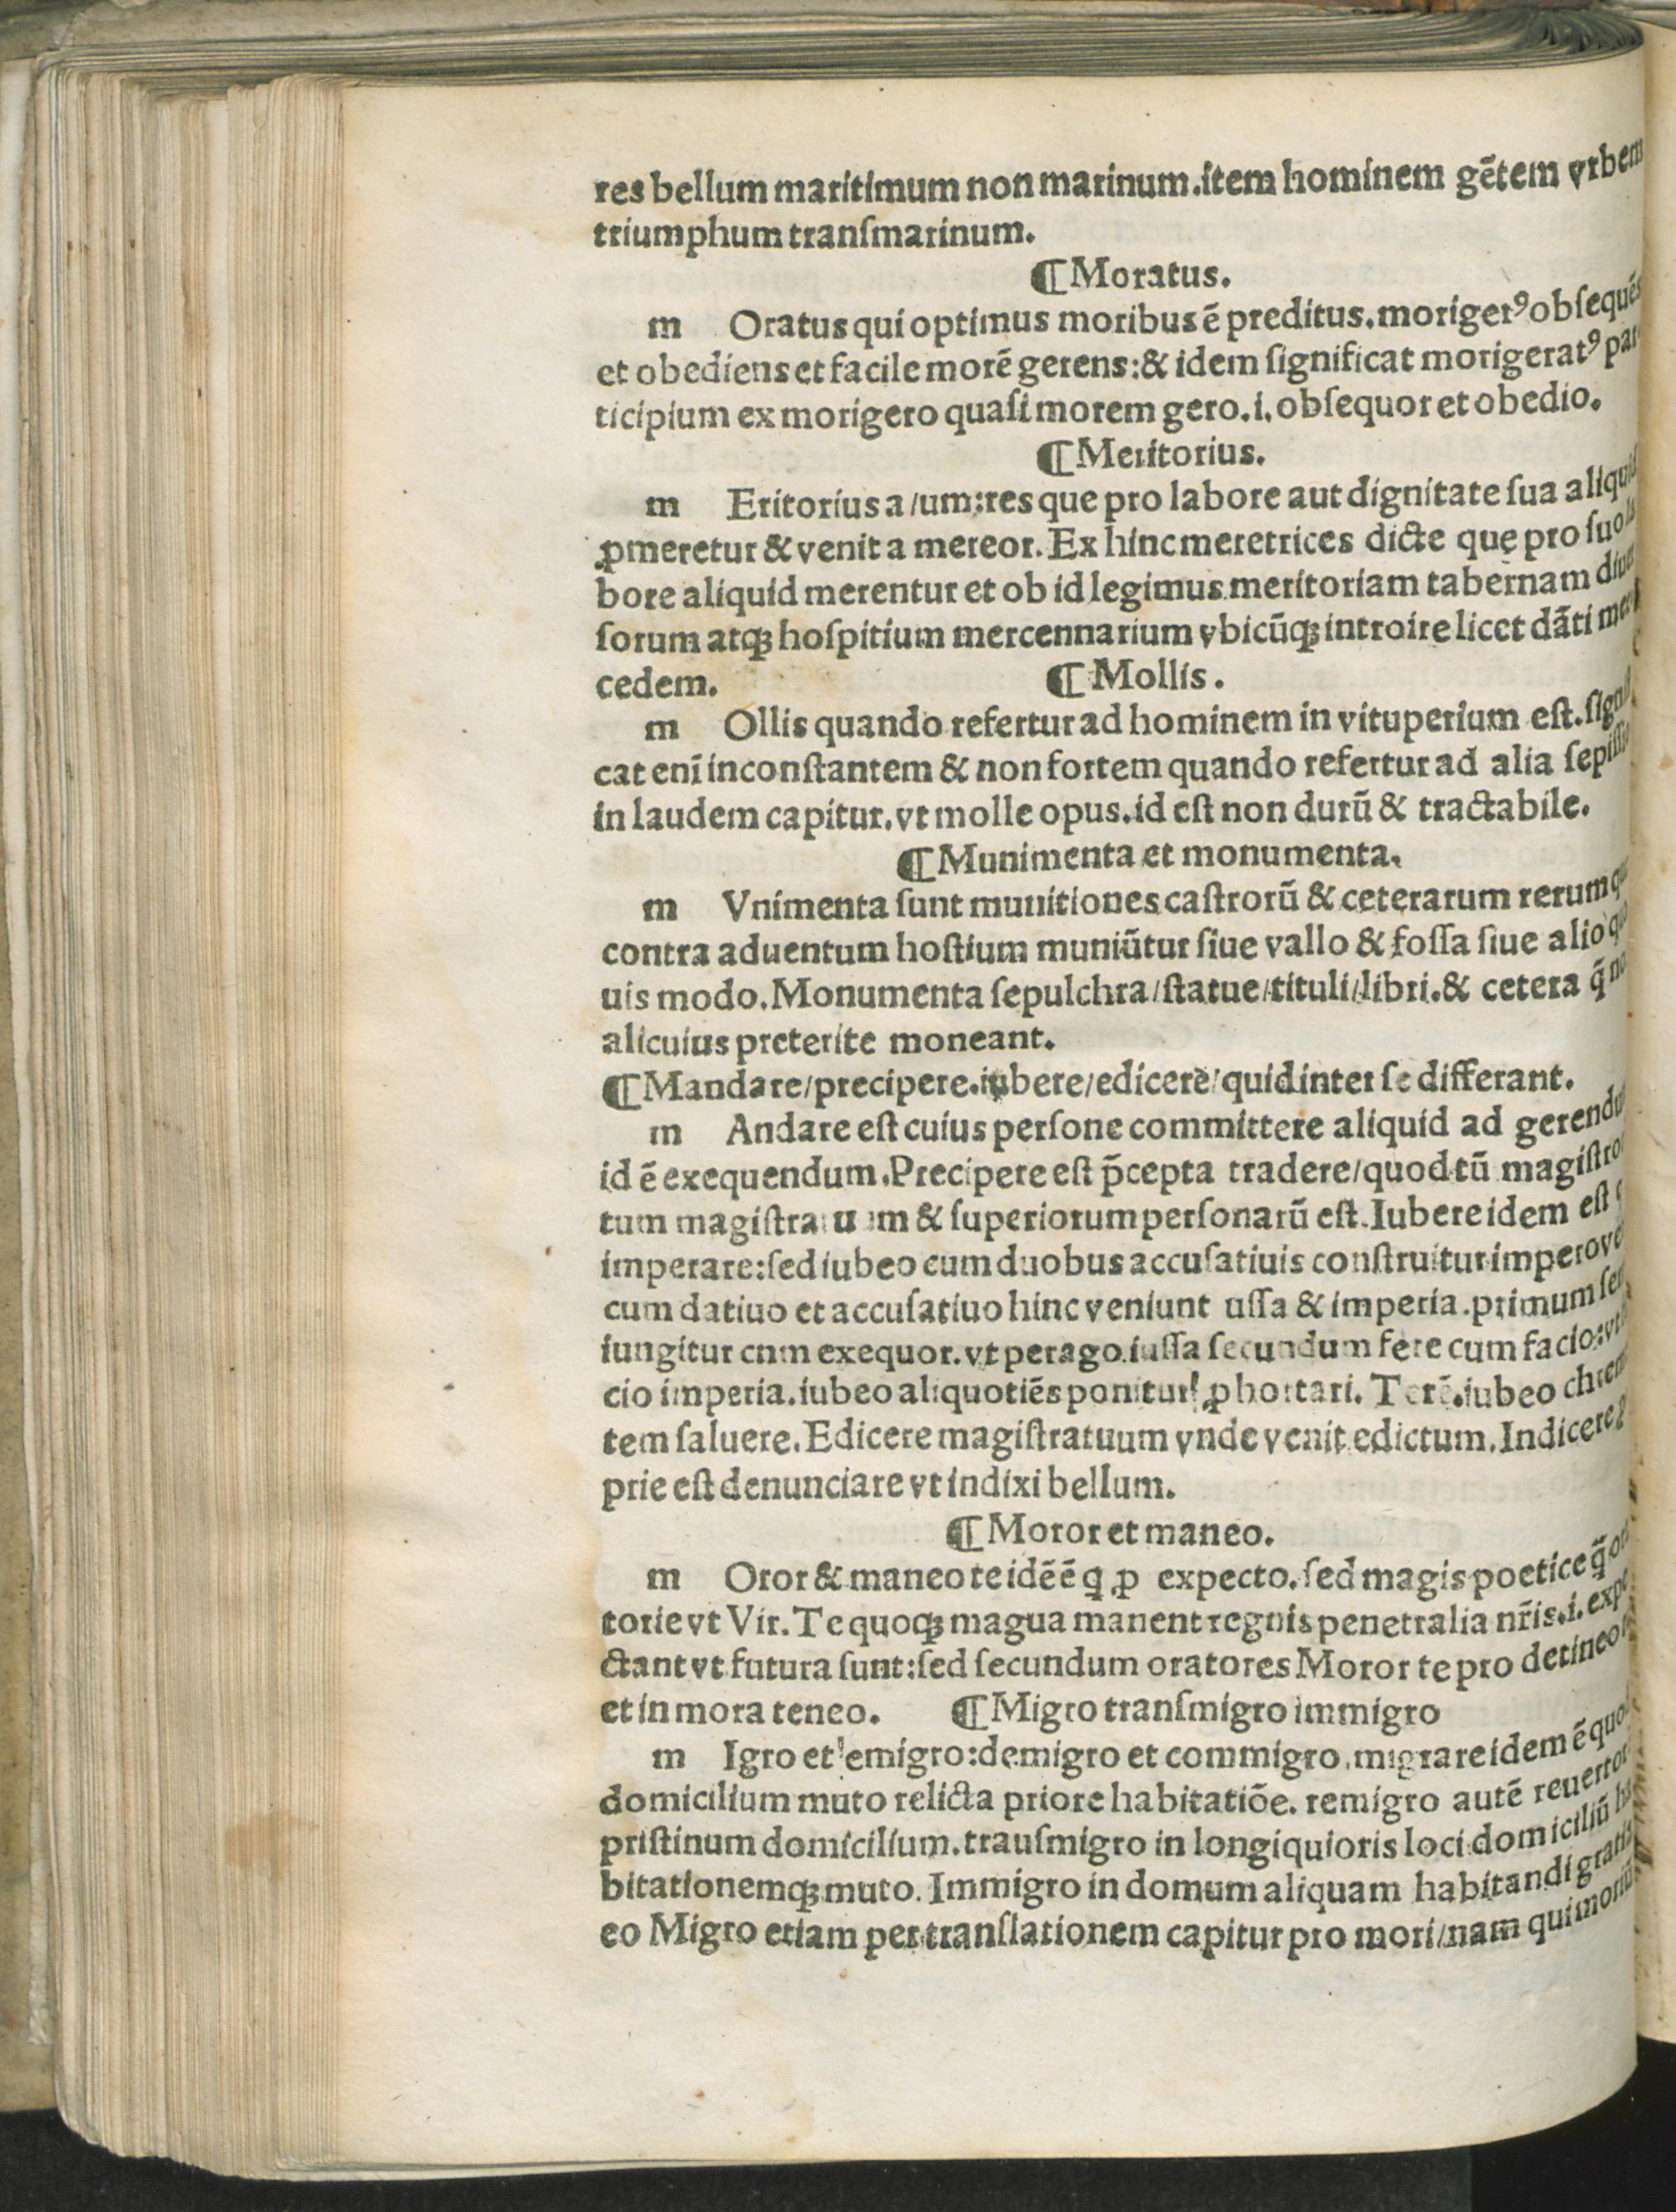 res bellum maritimum non marinum.item hominem gētem vrbem
triumphum tranſmarinum.
¶Moratus.
m Oratus qui optimus moribus ē preditus.morigerꝰ obſequēs
et obediens et facile morē gerens:& idem ſignificat morigeratꝰ par
ticipium ex morigero quaſi morem gero.i.obſequor et obedio.
¶Meritorius.
m Eritorius a/um:res que pro labore aut dignitate ſua aliquid
ꝓmeretur & venit a mereor.Ex hinc meretrices dicte quę pro ſuo la
bore aliquid merentur et ob id legimus meritoriam tabernam diuer
ſorum atqꝫ hoſpitium mercennarium vbicūqꝫ introire licet dāti mer
cedem. ¶Mollis.
m Ollis quando refertur ad hominem in vituperium eſt.ſignifi
cat enī inconſtantem & non fortem quando refertur ad alia
in laudem capitur.vt molle opus.id eſt non durū & tractabile.
¶Munimenta et monumenta.
m Vnimenta ſunt munitiones caſtrorū & ceterarum rerum
contra aduentum hoſtium muniūtur ſiue vallo & foſſa ſiue alio
uis modo.Monumenta ſepulchra/ſtatue/tituli/libri.& cetera q̄
alicuius preterite moneant.
¶Mandare/precipere.iubere/edicere/quid inter ſe differant.
m Andare eſt cuius perſone committere aliquid ad
id ē exequendum.Precipere eſt p̄cepta tradere/quod tū
tum magiſtratuum & ſuperiorum perſonarū eſt.Iubere idem eſt
imperare:ſed iubeo cum duobus accuſatiuis conſtruitur impero
cum datiuo et accuſatiuo hinc veniunt uſſa & imperia.primum
iungitur cnm exequor.vt perago.iuſſa ſecundum fere cum facio:
cio imperia.iubeo aliquotiēs ponitur ꝓ hortari. Terē.iubeo chreme
tem ſaluere.Edicere magiſtratuum vnde venit edictum.Indicere
prie eſt denunciare vt indixi bellum.
¶Moror et maneo.
m Oror & maneo te idē ē ꝙ ꝓ expecto.ſed magis poetice q̄
torie vt Vir. Te quoqꝫ magua manent regnis penetralia nr̄is.i.expe
ctant vt futura ſunt:ſed ſecundum oratores Moror te pro detineo
et in mora teneo. ¶Migro tranſmigro immigro
m Igro et emigro:demigro et commigro.migrare idem ē
domicilium muto relicta priore habitatiōe. remigro autē reuertor
priſtinum domicilium.trauſmigro in longiquioris loci domiciliū ha
bitationemqꝫ muto. Immigro in domum aliquam habitandi gratia
eo Migro etiam per tranſlationem capitur pro mori/nam qui moriū